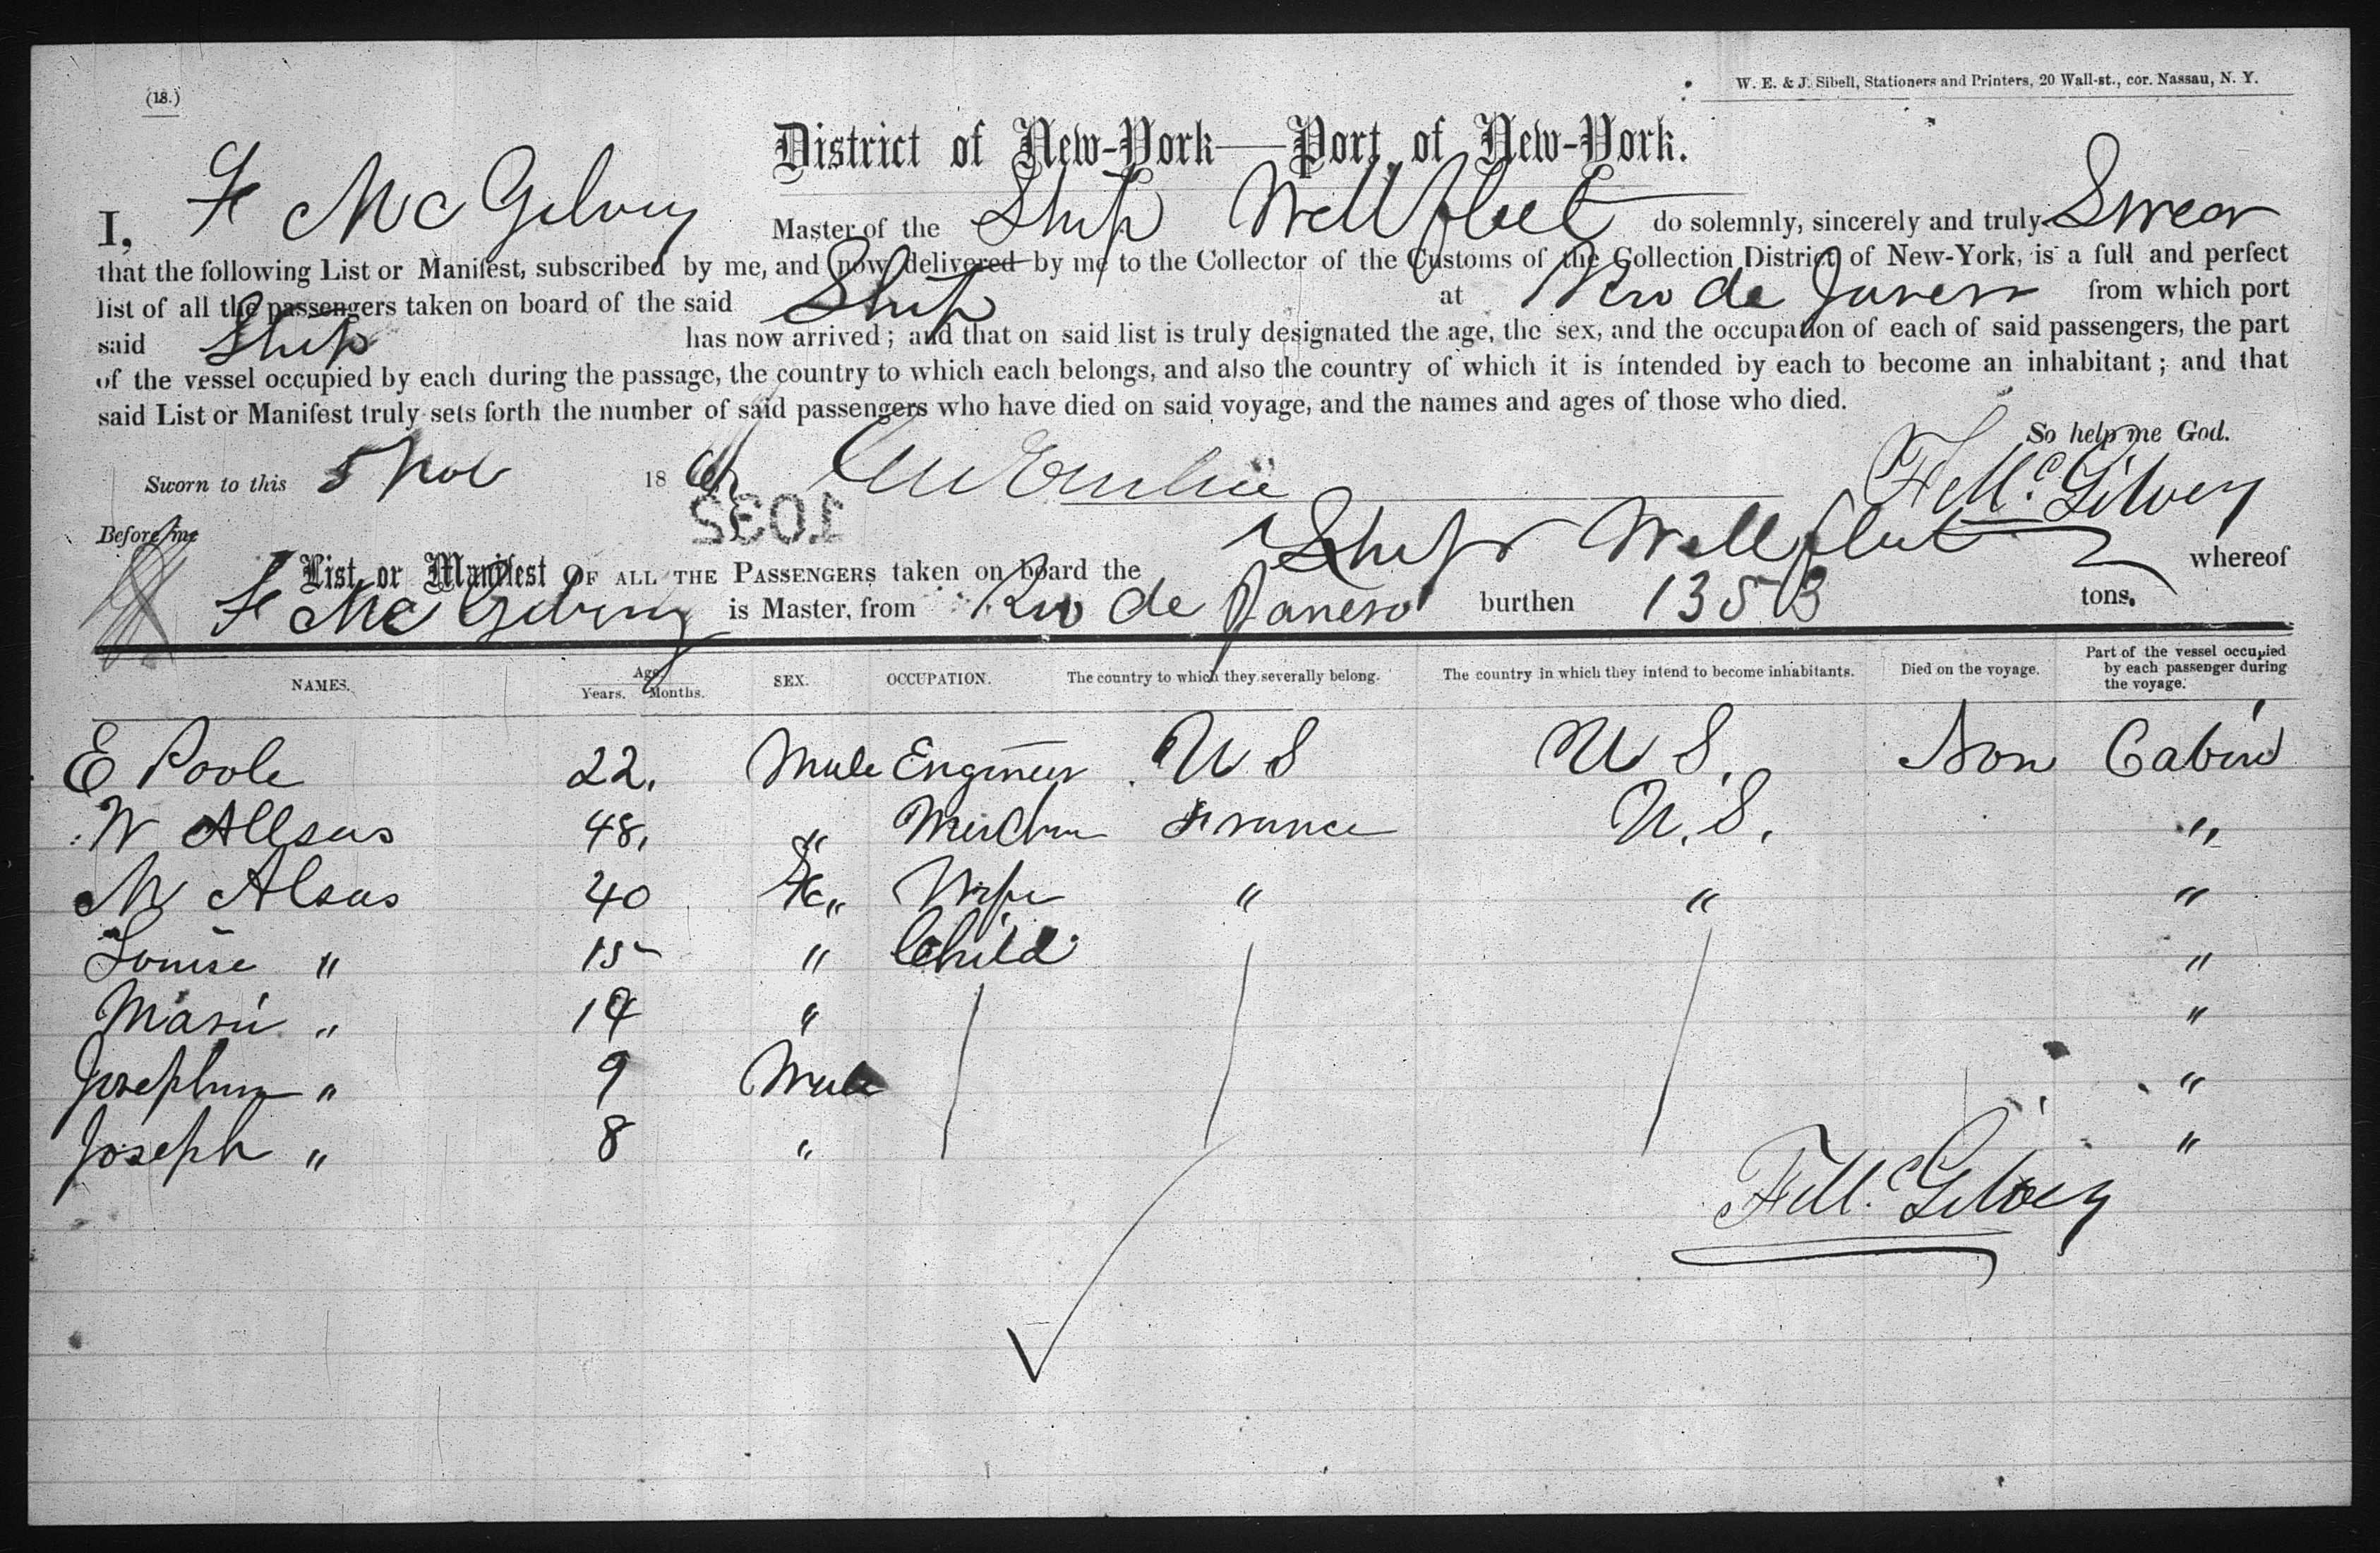 (18.)
W. E. & J. Sibell, Stationers and Printers, 20 Wall-st., cor. Nassau, N. Y.
District of New-York—Port of New-York.
I, F McGilvery Master of the Ship Wellfleet do solemnly, sincerely and truly Swear
that the following List or Manifest, subscribed by me, and now delivered by me to the Collector of the Customs of the Collection District of New-York, is a full and perfect
list of all the passengers taken on board of the said Ship at Rio de Janeiro from which port
said Ship has now arrived; and that on said list is truly designated the age, the sex, and the occupation of each of said passengers, the part
of the vessel occupied by each during the passage, the country to which each belongs, and also the country of which it is intended by each to become an inhabitant; and that
said List or Manifest truly sets forth the number of said passengers who have died on said voyage, and the names and ages of those who died.
So help me God.
Sworn to this 5 Nov 18 F McGilvery
1032
Before me
List or Manifest OF ALL THE PASSENGERS taken on board the Ship Wellfleet whereof
F McGilvery is Master, from Rio de Janeiro burthen 1353 tons.
NAMES. Age. Years. Months. SEX. OCCUPATION. The country to which they severally belong. The country in which they intend to become inhabitants. Died on the voyage. Part of the vessel occupied by each passenger during the voyage.
E Poole 22. Male Engineer U S U S. Non Cabin
W Allsus 48, " France U. S. "
M Alsus 40 Fe" Wife " " "
Louise " 15 " Child "
Marie " 14 " "
Josephin " 9 Male "
Joseph " 8 " "
F McGilvery